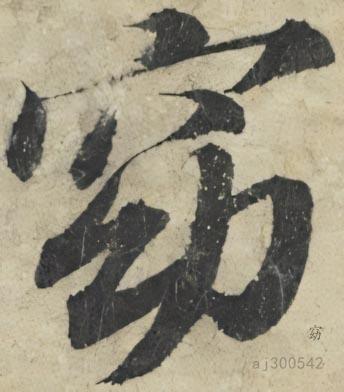 窈
窈
aj300542